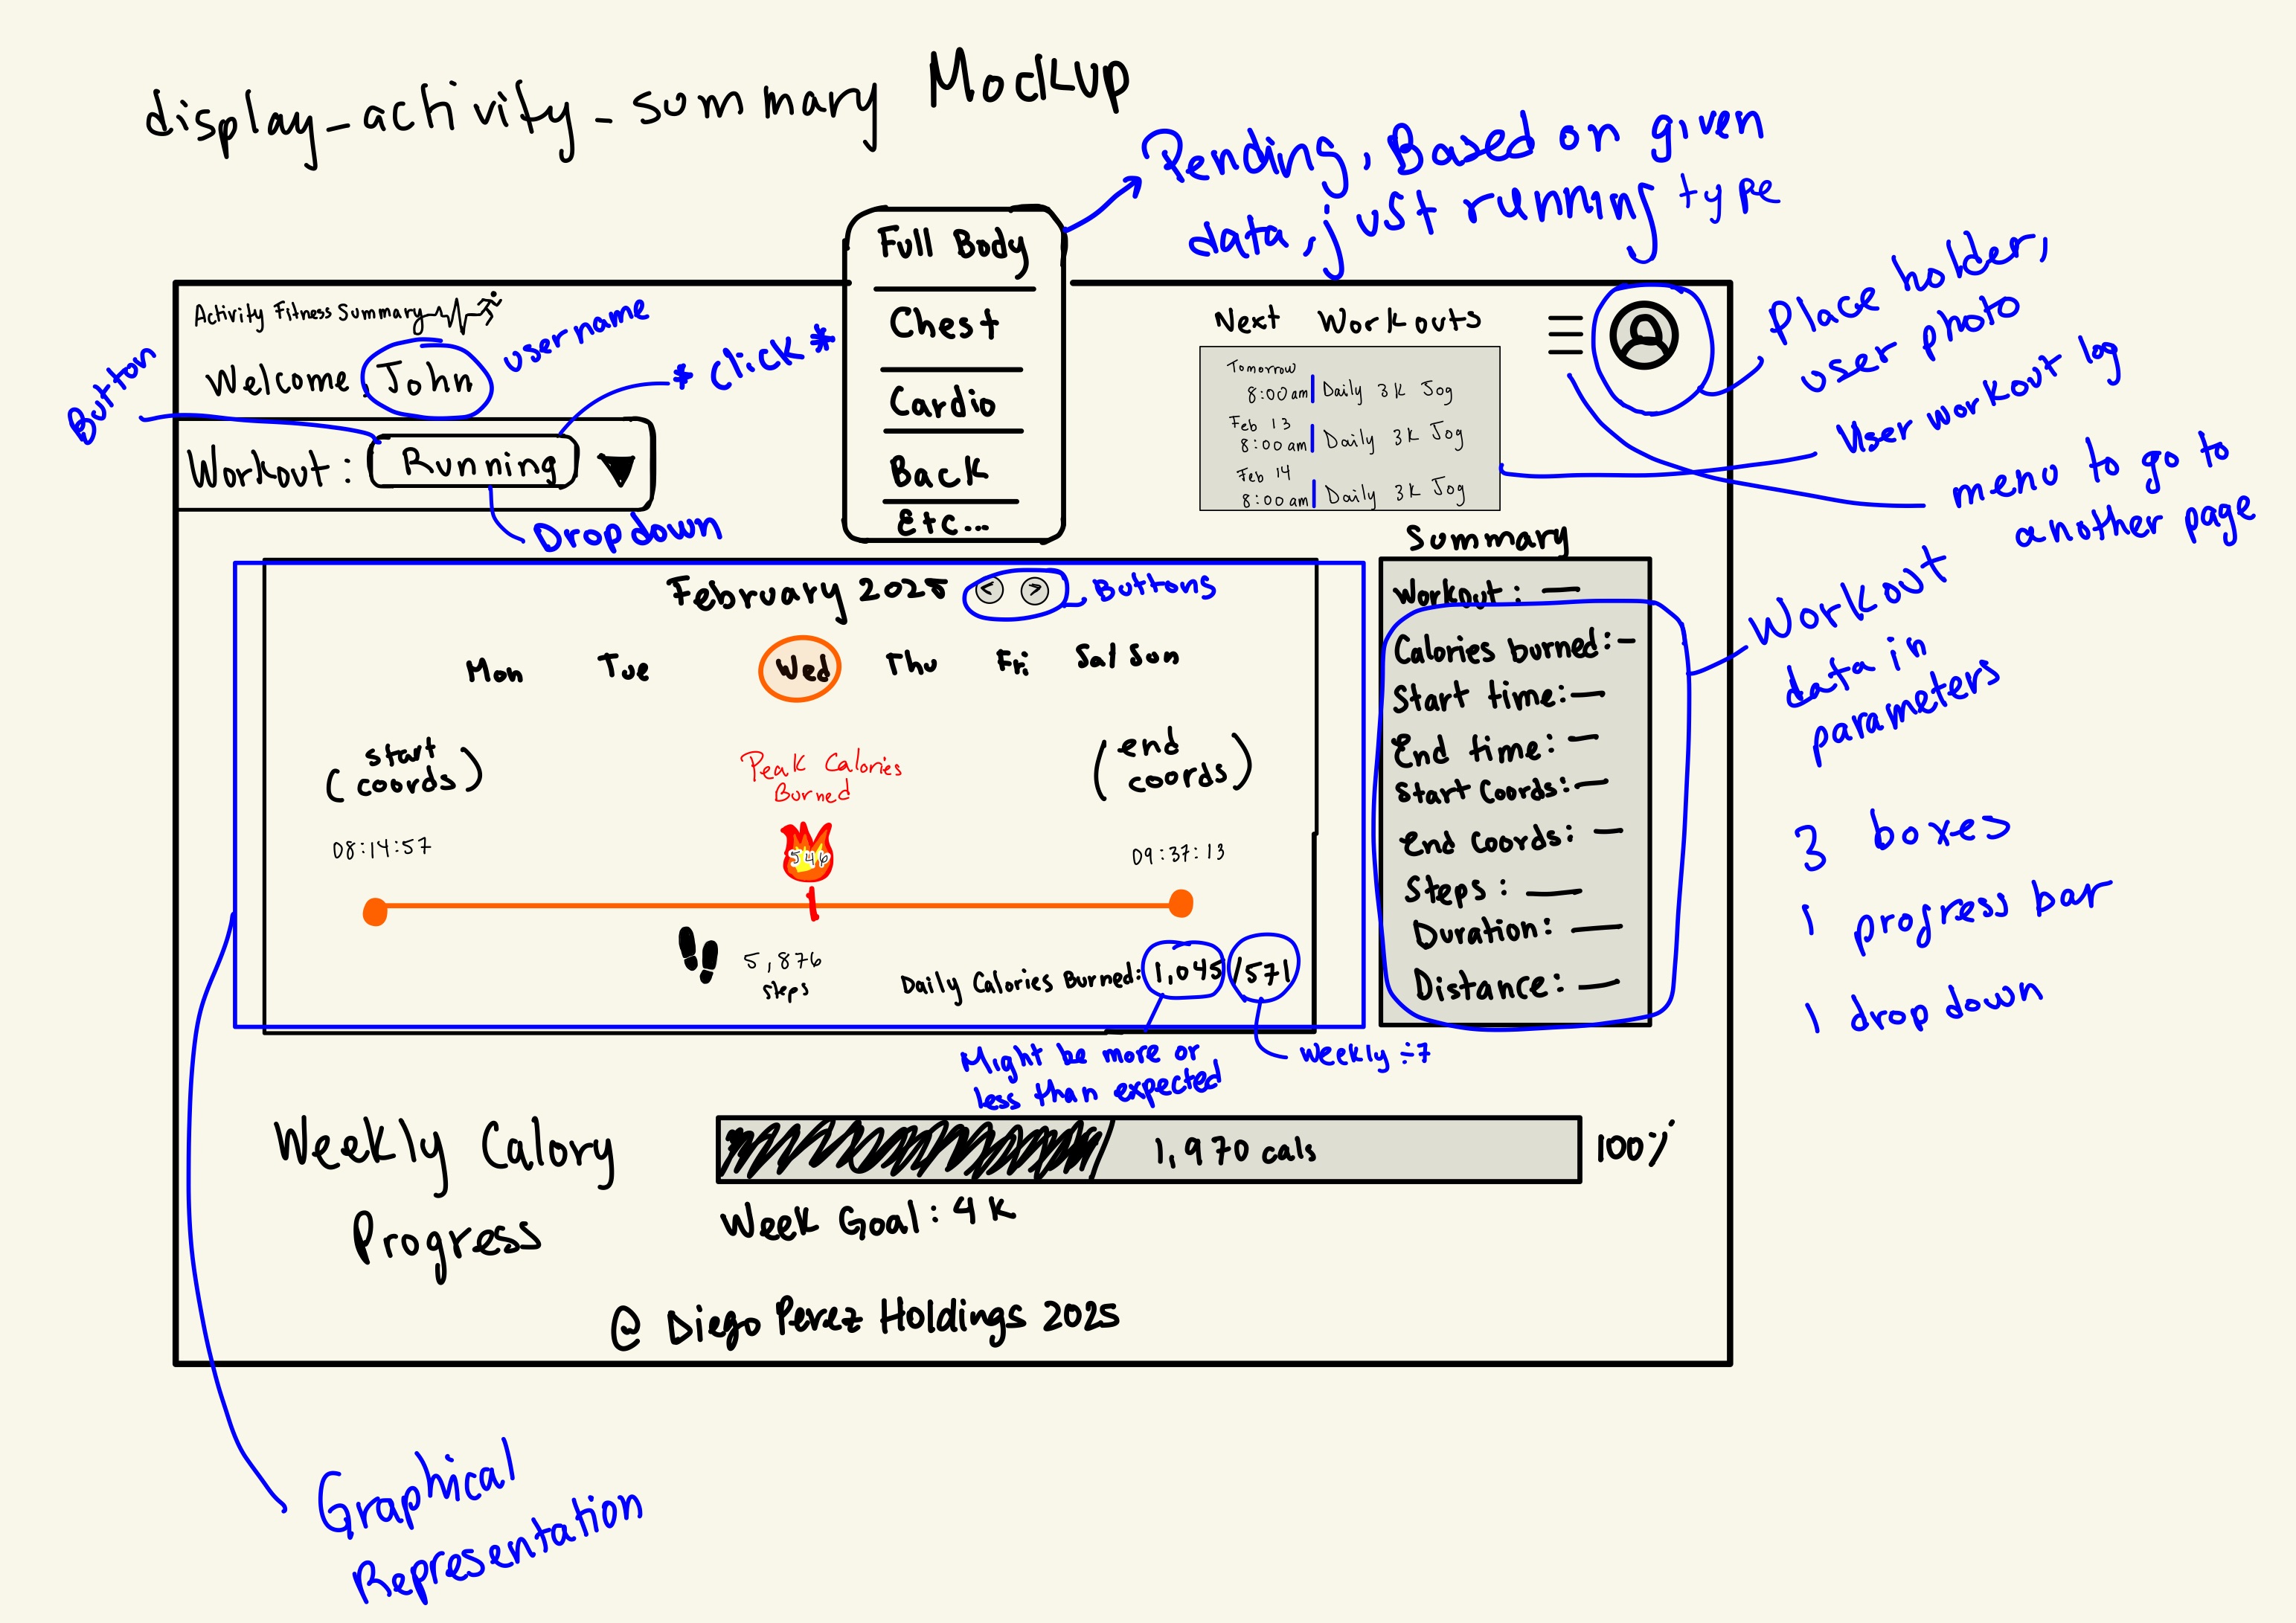 display_activity_summary Mockup
Pending, Based on given
data, just running type
Full Body
Chest
Cardio
Back
Etc...
Activity Fitness Summary
Welcome, John
username
Button
*click*
Workout: Running
Dropdown
Next Workouts
Tomorrow
8:00am Daily 3K Jog
Feb 13
8:00am Daily 3K Jog
Feb 14
8:00am Daily 3K Jog
Place holder,
user photo
User workout log
menu to go to
another page
February 2025 < >
Buttons
Mon Tue Wed Thu Fri Sat Sun
(start
coords)
Peak Calories
Burned
(end
coords)
08:14:57
546
09:37:13
5,876
steps
Daily Calories Burned: 1,045/571
Might be more or
less than expected
Weekly ÷7
Summary
Workout: —
Calories burned: —
Start time: —
End time: —
Start Coords: —
End Coords: —
Steps: —
Duration: —
Distance: —
Workout
data in
parameters
3 boxes
1 progress bar
1 drop down
Weekly Calory
Progress
1,970 cals
100%
Week Goal: 4K
@ Diego Perez Holdings 2025
Graphical
Representation